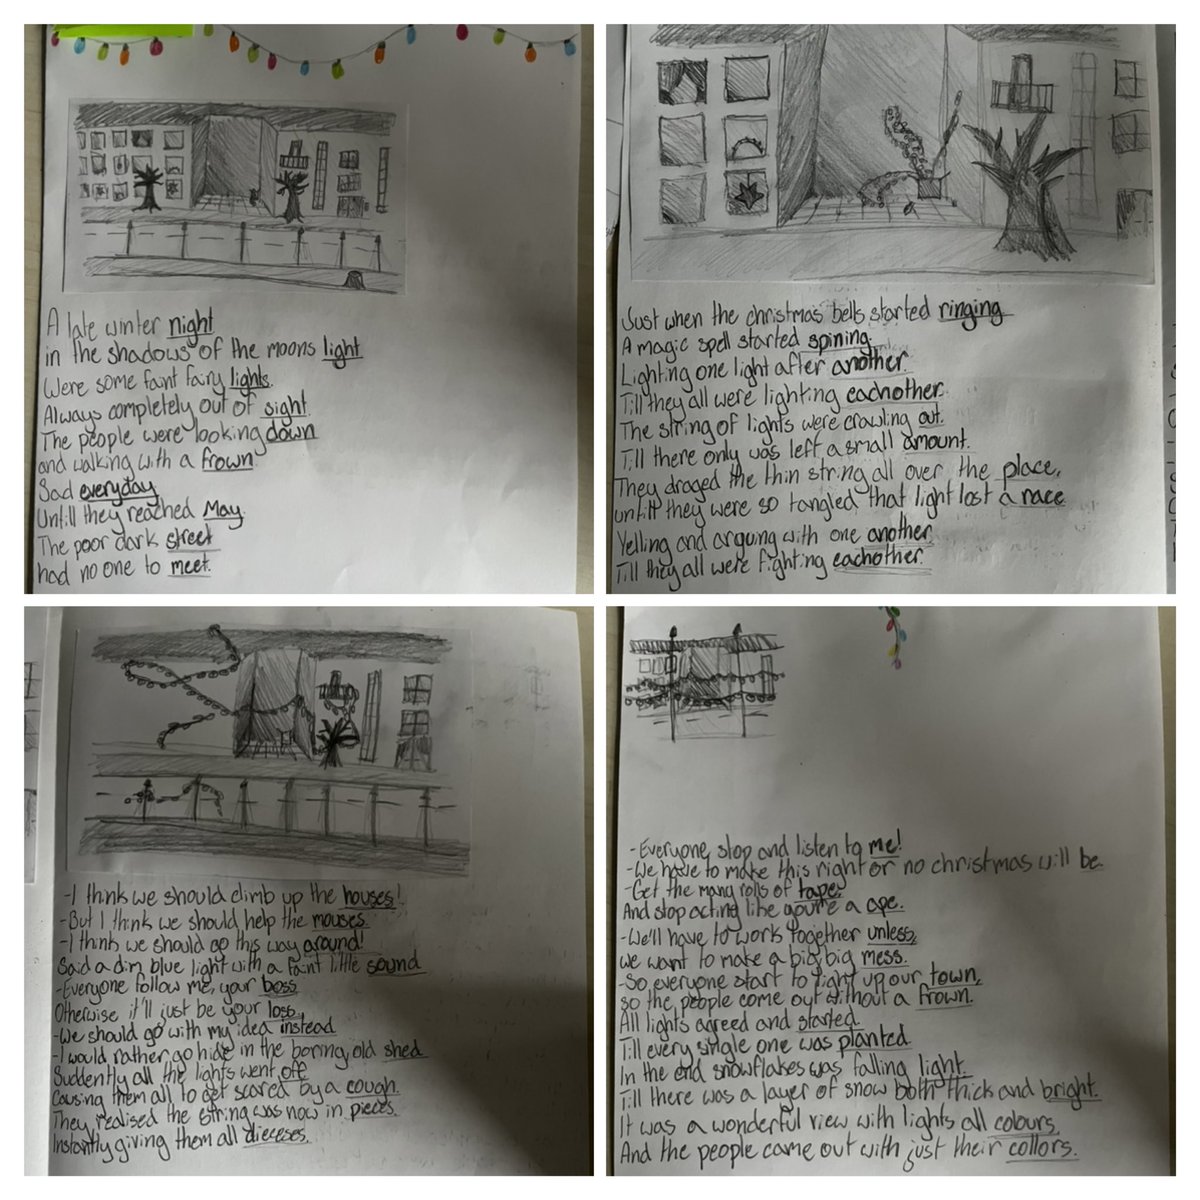 A late winter night
in the shadows of the moons light
Were some faint fairy lights.
Always completely out of sight
The people were looking down
and walking with a frown
Sad everyday
Untill they reached May.
The poor dark street
had no one to meet.
Just when the christmas bells started ringing
A magic spell started spining.
Lighting one light after another.
Till they all were lighting eachother.
The string of lights were crawling out.
Till there only was left a small amount.
They draged the thin string all over the place,
untill they were so tangled that light lost a race
Yelling and arguing with one another.
Till they all were fighting eachother.
-I think we should climb up the houses!
-But I think we should help the mouses.
-I think we should go this way around!
Said a dim blue light with a faint little sound
-Everyone follow me, your boss
Otherwise it'll just be your loss.
-We should go with my idea instead
-I would rather go hide in the boring, old shed
Suddently all the lights went off
Causing them all to get scared by a cough.
They realised the string was now in pieces.
Instantly giving them all dieceses.
-Everyone, stop and listen to me!
-We have to make this right or no christmas will be
-Get the many rolls of tape,
And stop acting like you're a ape.
-We'll have to work together unless,
we want to make a big big mess.
-So everyone start to light up our town,
so the people come out without a frown.
All lights agreed and started
Till every single one was planted
In the end snowflakes was falling light.
Till there was a layer of snow both thick and bright.
It was a wonderful view with lights all colours,
And the people came out with just their collors.